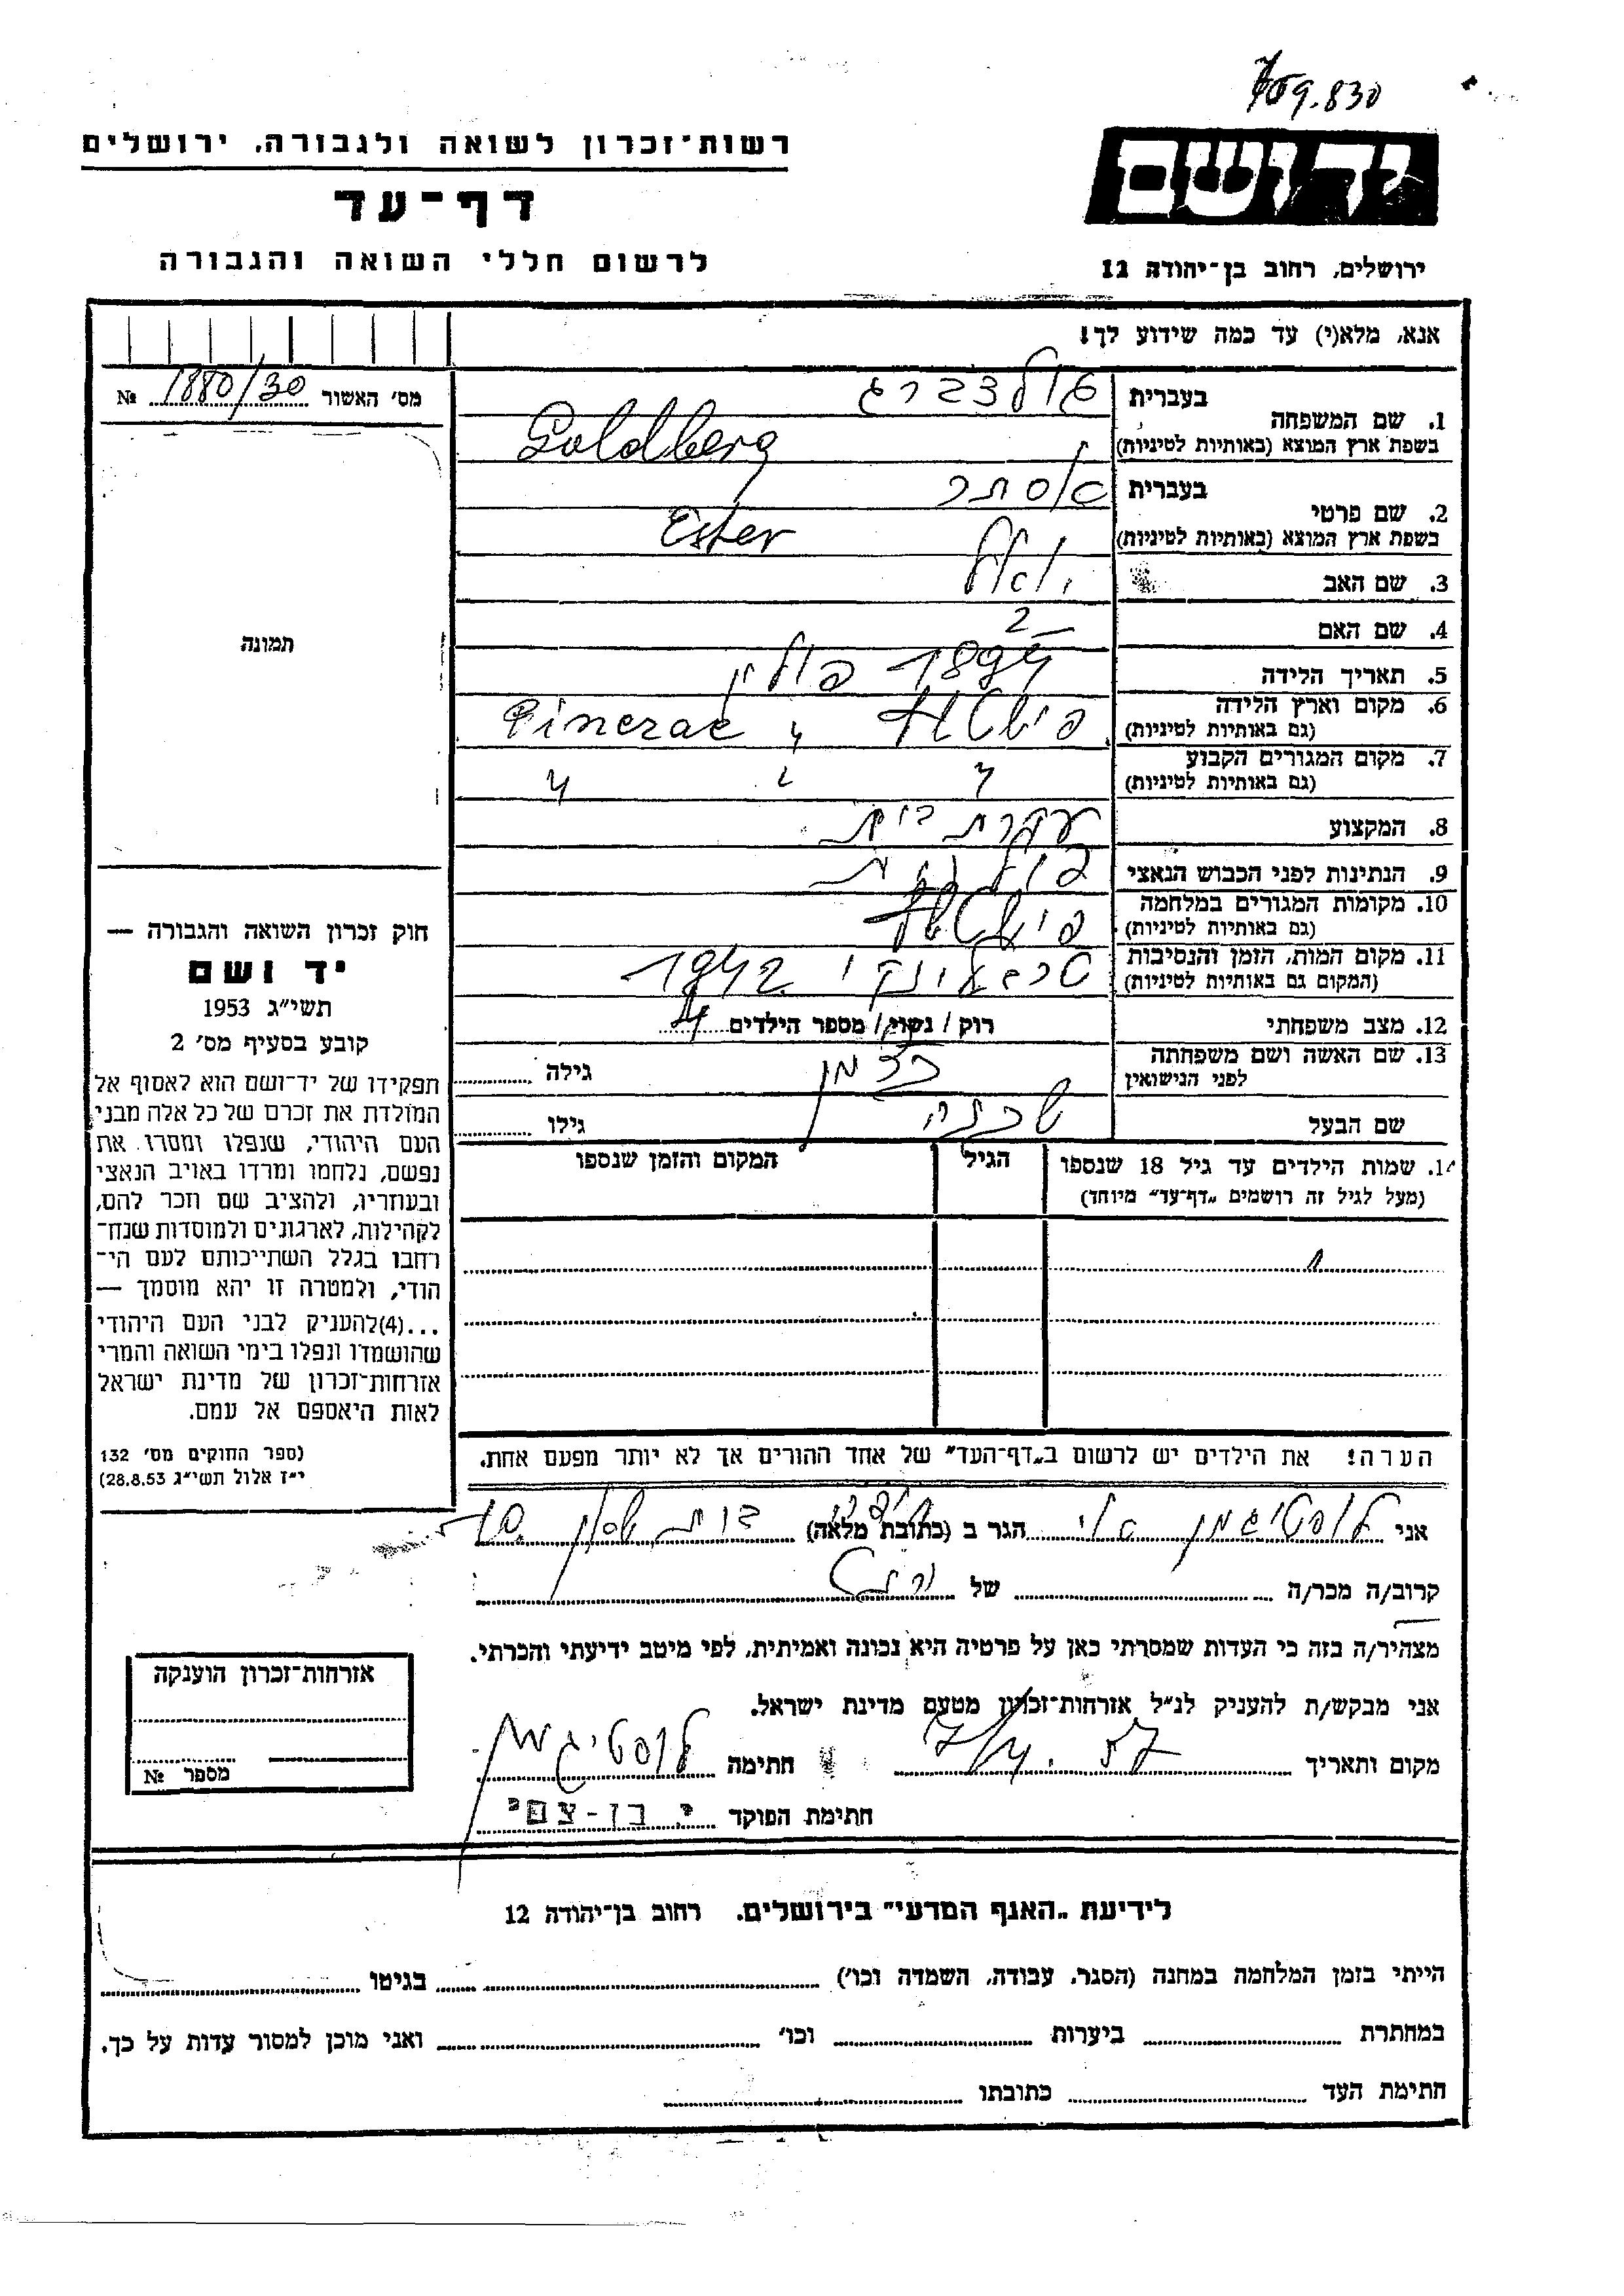 709.830
יד ושם
רשות-זכרון לשואה ולגבורה, ירושלים
דף-עד
לרשום חללי השואה והגבורה
ירושלים, רחוב בן-יהודה 12
אנא, מלא(י) עד כמה שידוע לך!
מס' האשור № 1880/30
1. שם המשפחה
בעברית גולדברג
בשפת ארץ המוצא (באותיות לטיניות) Goldberg
2. שם פרטי
בעברית אסתר
בשפת ארץ המוצא (באותיות לטיניות) Ester
3. שם האב יואל
4. שם האם
5. תאריך הלידה 1894 פולין
6. מקום וארץ הלידה
(גם באותיות לטיניות)
7. מקום המגורים הקבוע
(גם באותיות לטיניות)
8. המקצוע עקרת בית
9. הנתינות לפני הכבוש הנאצי פולנית
10. מקומות המגורים במלחמה
(גם באותיות לטיניות)
11. מקום המות, הזמן והנסיבות טרבלינקי 1942
(המקום גם באותיות לטיניות)
12. מצב משפחתי רוק / נשוי / מספר הילדים 4
13. שם האשה ושם משפחתה
לפני הנישואין גילה
שם הבעל גילו
14. שמות הילדים עד גיל 18 שנספו הגיל המקום והזמן שנספו
(מעל לגיל זה רושמים "דף-עד" מיוחד)
הערה! את הילדים יש לרשום ב"דף-העד" של אחד ההורים אך לא יותר מפעם אחת.
תמונה
חוק זכרון השואה והגבורה —
יד ושם
תשי"ג 1953
קובע בסעיף מס' 2
תפקידו של יד-ושם הוא לאסוף אל
המולדת את זכרם של כל אלה מבני
העם היהודי, שנפלו ומסרו את
נפשם, נלחמו ומרדו באויב הנאצי
ובעוזריו, ולהציב שם וזכר להם,
לקהילות, לארגונים ולמוסדות שנח־
רבו בגלל השתייכותם לעם הי־
הודי, ולמטרה זו יהא מוסמך —
...(4)להעניק לבני העם היהודי
שהושמדו ונפלו בימי השואה והמרי
אזרחות-זכרון של מדינת ישראל
לאות היאספם אל עמם.
(ספר החוקים מס' 132
י"ז אלול תשי"ג 28.8.53)
אני לוסטיגמן הגר ב (כתובת מלאה)
קרוב/ה מכר/ה של
מצהיר/ה בזה כי העדות שמסרתי כאן על פרטיה היא נכונה ואמיתית, לפי מיטב ידיעתי והכרתי.
אני מבקש/ת להעניק לנ"ל אזרחות-זכרון מטעם מדינת ישראל.
מקום ותאריך 7/4.57 חתימה לוסטיגמן
חתימת הפוקד י. בן-צבי
אזרחות-זכרון הוענקה
מספר №
לידיעת "האגף המדעי" בירושלים, רחוב בן-יהודה 12
הייתי בזמן המלחמה במחנה (הסגר, עבודה, השמדה וכו') בגיטו
במחתרת ביערות וכו' ואני מוכן למסור עדות על כך.
חתימת העד כתובתו